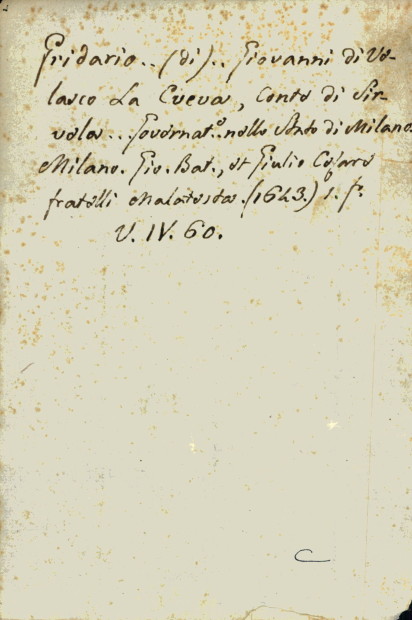 Gridario.. (di).. Giovanni di Ve-
lasco La Cueva, Conte di Sir-
vela.. Governat.e nello Stato di Milano
Milano. Gio. Bat., et Giulio Cesare
fratelli Malatesta. (1643.) s. f.
V. IV. 60.
C